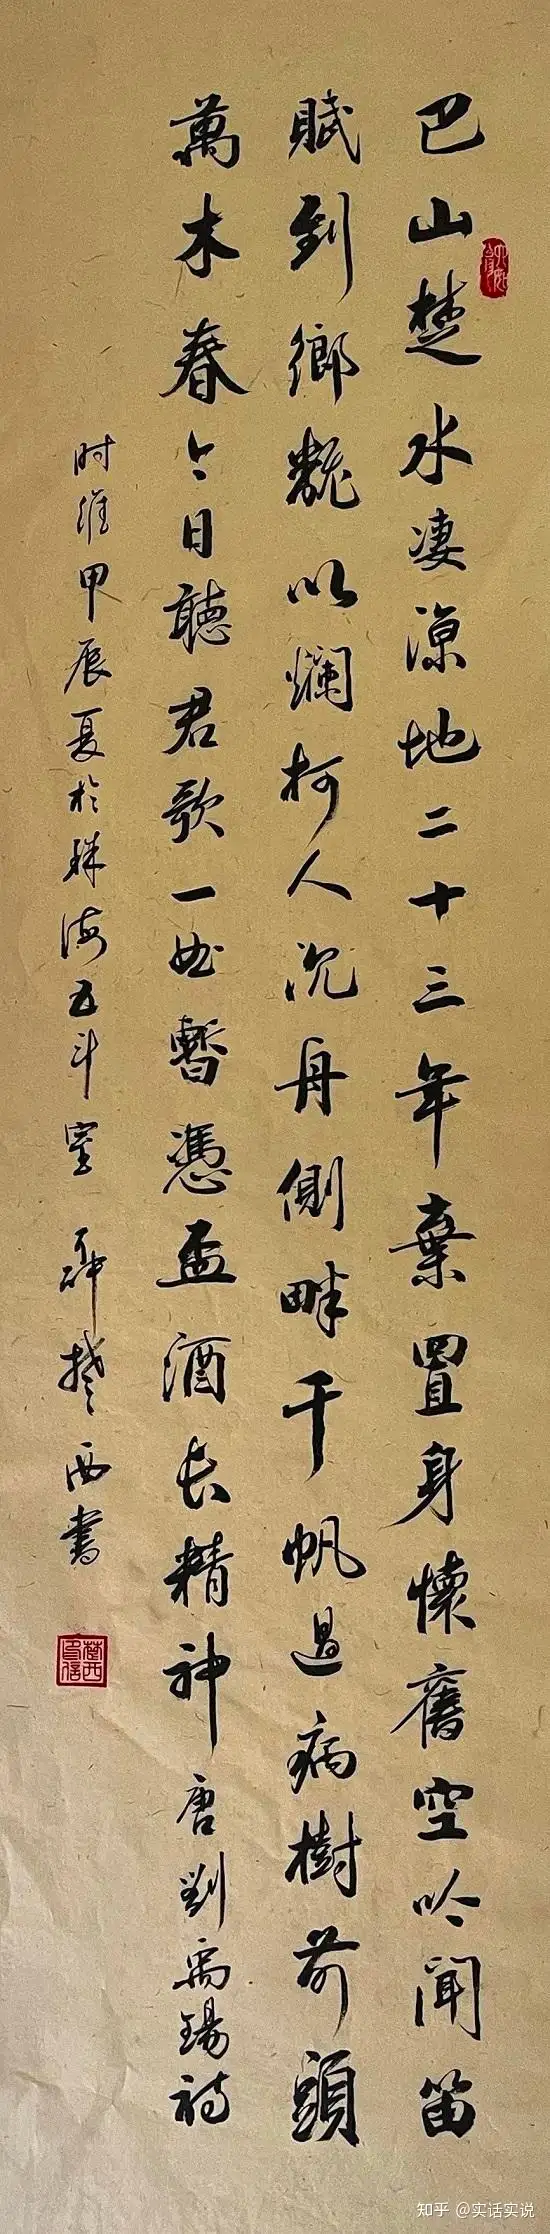 巴山楚水凄涼地二十三年棄置身懷舊空吟聞笛
賦到鄉翻以爛柯人沉舟側畔千帆過病樹前頭
萬木春今日聽君歌一曲暫憑盃酒長精神唐劉禹錫詩
时維甲辰夏於珠海五斗室 楚西書
知乎 @实话实说